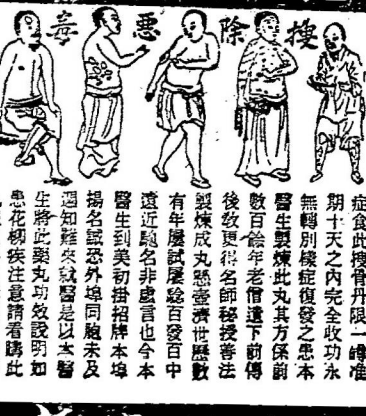 搜除惡毒
症食此搜骨丹限一罇准
期十天之內完全收功永
無轉別樣症復發之患本
醫生製煉此丸其方係前
數百餘年老僧遺下前傳
後教更得名師秘授善法
製煉成丸懸壺濟世歷數
有年屢試屢騐百發百中
遠近馳名非虛言也今本
醫生到美初掛招牌本埠
揚名誠恐外埠同胞未及
週知難來就醫是以本醫
生將此藥丸功效說明如
患花柳疾注意請看購此